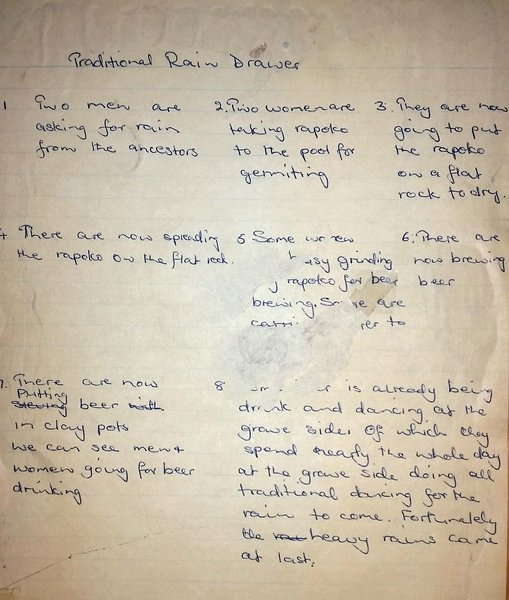 Traditional Rain Drawer
1 Two men are
asking for rain
from the ancestors
2. Two women are
taking rapoko
to the pool for
germiting
3. They are now
going to put
the rapoko
on a flat
rock to dry.
4 There are now spreading
the rapoko on the flat rock.
5 Some
busy grinding
rapoko for beer
brewing. are
to
6. There are
now brewing
beer
7. There are now
putting
beer
in clay pots
we can see men +
women going for beer
drinking
8 is already being
drink and dancing at the
grave sides of which they
spend nearly the whole day
at the grave side doing all
traditional dancing for the
rain to come. Fortunately
the heavy rains came
at last.